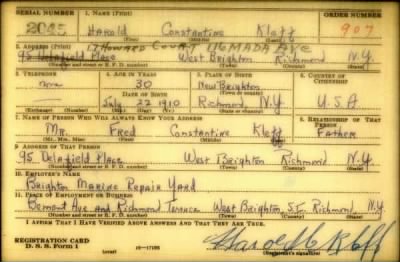 SERIAL NUMBER 1. NAME (Print) ORDER NUMBER
2025 Harold Constantine Klatt 907
(First) (Middle) (Last)
17 Howard Court 116 MADA AVE
2. ADDRESS (Print)
95 Delafield Place West Brighton Richmond N.Y.
(Number and street or R. F. D. number) (Town) (County) (State)
3. TELEPHONE 4. AGE IN YEARS 5. PLACE OF BIRTH 6. COUNTRY OF CITIZENSHIP
none 30 New Brighton
DATE OF BIRTH (Town or county)
July 22 1910 Richmond, N.Y. U.S.A.
(Exchange) (Number) (Mo.) (Day) (Yr.) (State or country)
7. NAME OF PERSON WHO WILL ALWAYS KNOW YOUR ADDRESS 8. RELATIONSHIP OF THAT PERSON
Mr. Fred Constantine Klatt Father
(Mr., Mrs., Miss) (First) (Middle) (Last)
9. ADDRESS OF THAT PERSON
95 Delafield Place West Brighton Richmond N.Y.
(Number and street or R. F. D. number) (Town) (County) (State)
10. EMPLOYER'S NAME
Brighton Marine Repair Yard
11. PLACE OF EMPLOYMENT OR BUSINESS
Bement Ave and Richmond Terrace West Brighton, S.I. Richmond, N.Y.
(Number and street or R. F. D. number) (Town) (County) (State)
I AFFIRM THAT I HAVE VERIFIED ABOVE ANSWERS AND THAT THEY ARE TRUE.
REGISTRATION CARD
D. S. S. Form 1 16—17105 Harold C Klatt
(Registrant's signature)